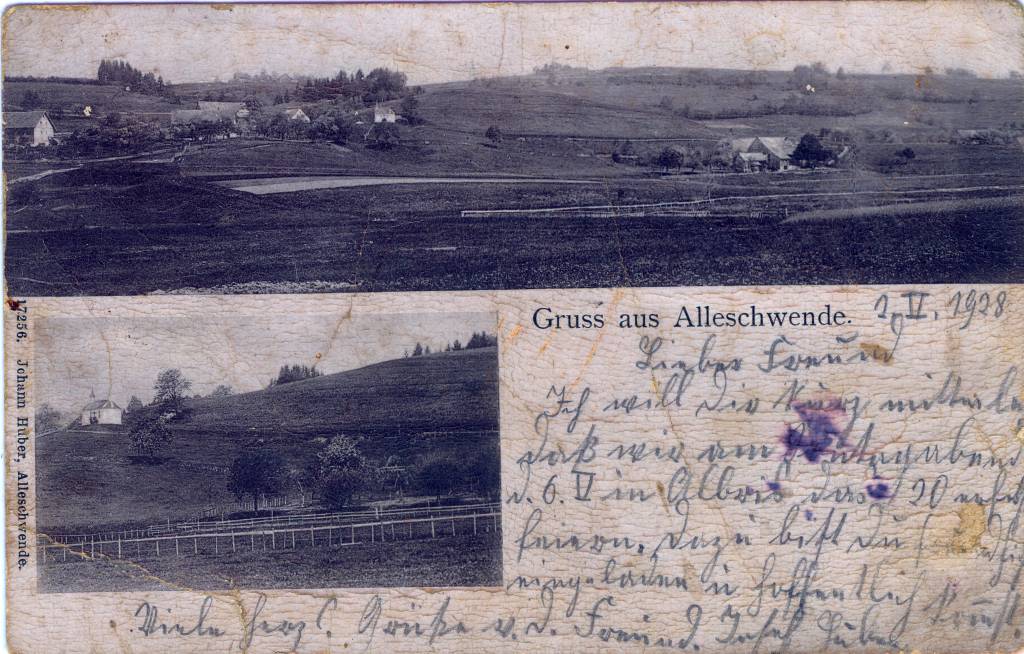 Gruss aus Alleschwende.
2. V. 1928
Lieber Freund
Ich will dir kurz mitteilen
daß wir am Sonntagabend
d. 6. V in Albris das 20
feiern. Dazu bist du
eingeladen u hoffentlich kommst.
Viele herzl. Grüße v. d. Freund. Josef Huber
17256. Johann Huber, Alleschwende.